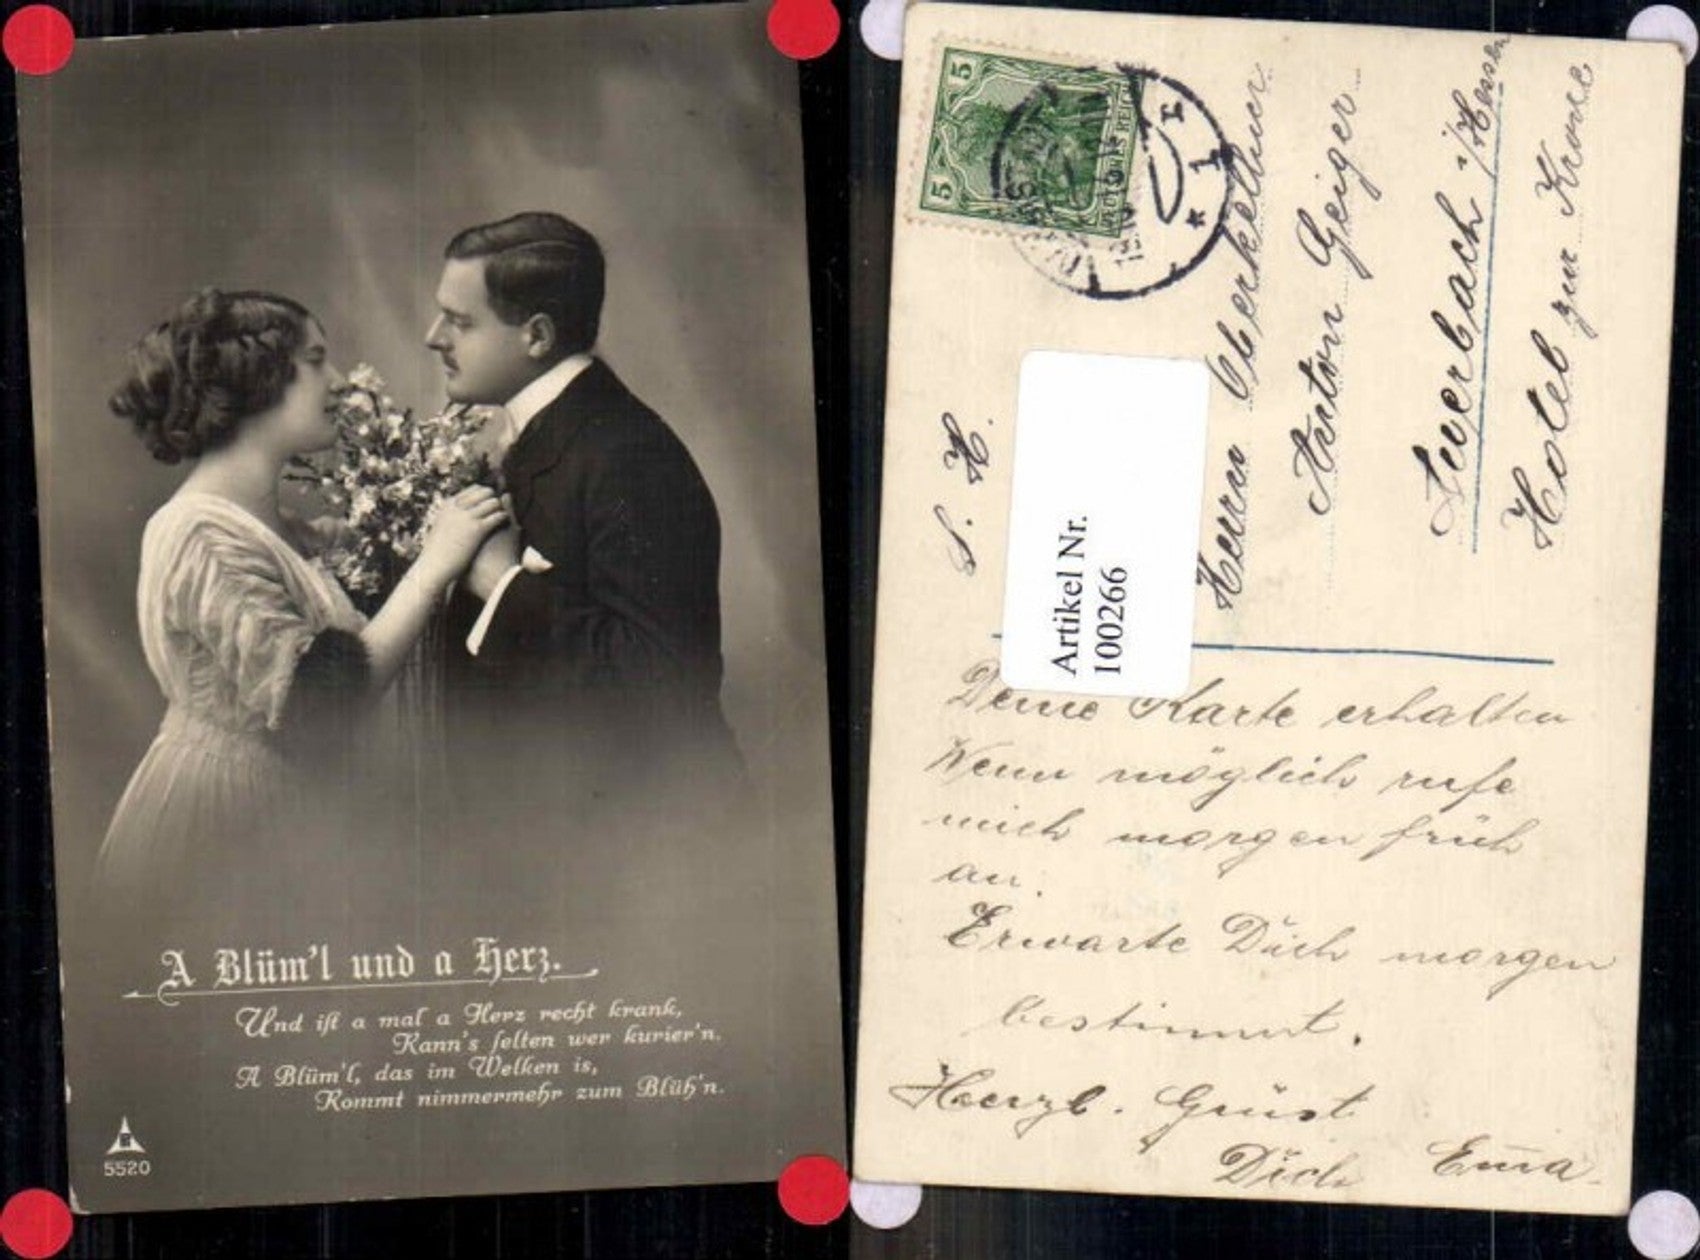 A Blüm'l und a Herz.
Und ist a mal a Herz recht krank,
Kann's selten wer kurier'n.
A Blüm'l, das im Welken is,
Kommt nimmermehr zum Blüh'n.
5520
5
5
DEUTSCHES REICH
* 1 r
S. H.
Artikel Nr.
100266
Herrn Oberkellner
Anton Geiger
Auerbach i/Hessen
Hotel zur Krone
Deine Karte erhalten
Wenn möglich rufe
mich morgen früh
an.
Erwarte Dich morgen
bestimmt.
Herzl. Grüst
Dich Em̄a.